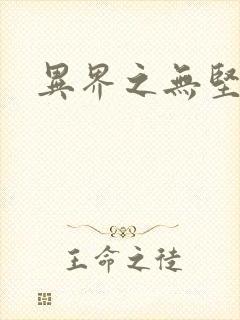 異界之無堅
王命之徒